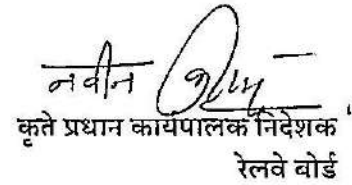 नवीन
कृते प्रधान कार्यपालक निदेशक
रेलवे बोर्ड